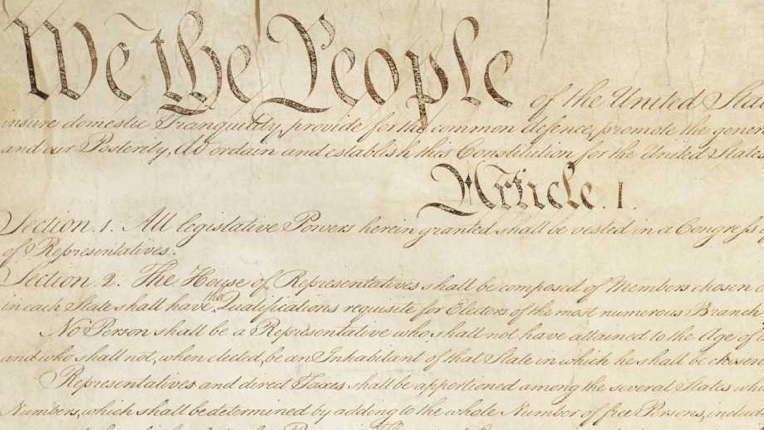 We the People of the United Sta
insure domestic Tranquility, provide for the common defence, promote the gener
and our Posterity, do ordain and establish this Constitution for the United States
Article. I.
Section. 1. All legislative Powers herein granted shall be vested in a Congress
of Representatives.
Section. 2. The House of Representatives shall be composed of Members chosen
in each State shall have the Qualifications requisite for Electors of the most numerous Branch
No Person shall be a Representative who shall not have attained to the Age of
and who shall not, when elected, be an Inhabitant of that State in which he shall be chosen
Representatives and direct Taxes shall be apportioned among the several States
Numbers, which shall be determined by adding to the whole Number of free Persons, includ